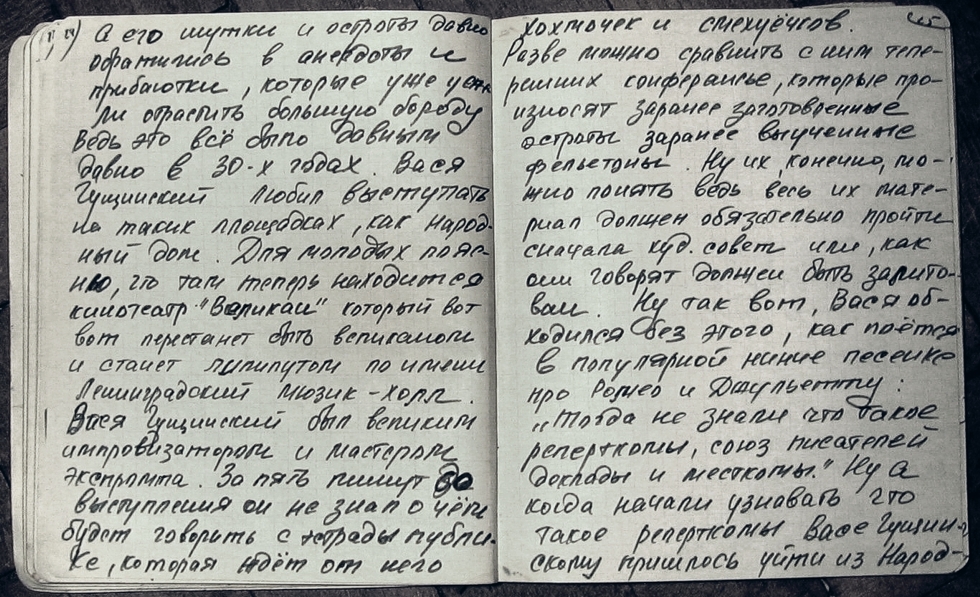 44) А его шутки и остроты давно
обратились в анекдоты и
прибаутки, которые уже успе-
ли отрастить большую бороду
Ведь это всё было давным
давно в 30-х годах. Вася
Гущинский любил выступать
на таких площадках, как народ-
ный дом. Для молодых пояс-
ню, что там теперь находится
кинотеатр "Великан" который вот
вот перестанет быть великаном
и станет лилипутом по имени
Ленинградский Мюзик-холл.
Вася Гущинский был великим
импровизатором и мастером
экспромта. За пять минут до
выступления он не знал о чём
будет говорить с эстрады публи-
ке, которая ждёт от него
45
хохмочек и смехуёчков.
Разве можно сравнить с ним тепе-
решних конферансье, которые про-
износят заранее заготовленные
остроты заранее выученные
фельетоны. Ну их, конечно, мо-
жно понять ведь весь их мате-
риал должен обязательно пройти
сначала худ. совет или, как
они говорят должен быть залито-
ван. Ну так вот, Вася об-
ходился без этого, как поётся
в популярной ныне песенке
про Ромео и Джульетту:
„Тогда не знали что такое
реперткомы, союз писателей
доклады и месткомы." Ну а
когда начали узнавать что
такое реперткомы Васе Гущин-
скому пришлось уйти из Народ-